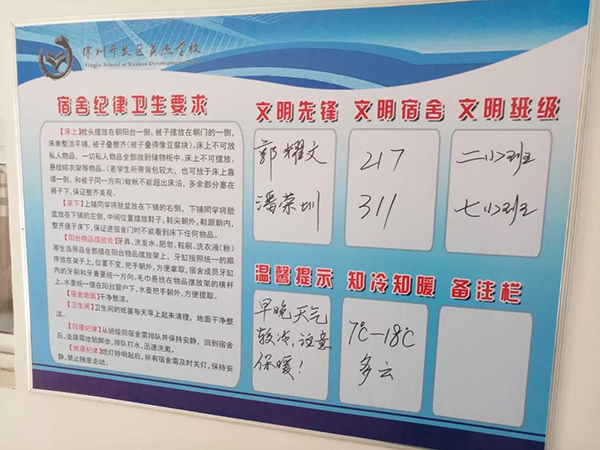 徐州开发区英杰学校
Yingjie School of Xuzhou Development
宿舍纪律卫生要求
【床上】枕头摆放在朝阳台一侧,被子摆放在朝门的一侧,
床单整洁平铺,被子叠整齐(被子叠得像豆腐块),床上不可放
私人物品,一切私人物品全部放到储物柜中,床上不可摆放、
悬挂晾衣架等物品,(若学生所带背包较大,也可放于床上靠
墙一侧,和被子同一方向)蚊帐不能超出床沿,多余部分塞在
褥子下,保证整齐美观。
【床下】上铺同学将脸盆放在下铺的右侧,下铺同学将脸
盆放在下铺的左侧,中间位置摆放鞋子,鞋尖朝外,鞋跟朝内,
整齐摆于床下,保证进宿舍门时不能看到床下任何物品。
【阳台物品摆放处】牙具,洗发水,肥皂,鞋刷,洗衣液(粉)
等生活用品全部摆在阳台物品摆放架上,牙缸按照统一的顺
序放在架子上,位置不变,把手朝外,方便拿取,宿舍成员牙缸
内的牙刷和牙膏要统一方向,毛巾悬挂在物品摆放架的横杆
上,水壶统一摆在阳台窗户下,水壶把手朝外,方便提取。
【宿舍地面】干净整洁。
【卫生间】卫生间的纸篓每天早上起来清理,地面干净整
洁。
【回寝纪律】从班级回宿舍需排队并保持安静,回到宿舍
后,走路需放轻脚步,排队打水,迅速洗漱。
【就寝纪律】熄灯铃响起后,所有宿舍需及时关灯,保持安
静,禁止随意走动。
文明先锋
郭耀文
潘荣圳
文明宿舍
217
311
文明班级
二(1)班
七(1)班
温馨提示
早晚天气
较冷,注意
保暖!
知冷知暖
7℃—18℃
多云
备注栏